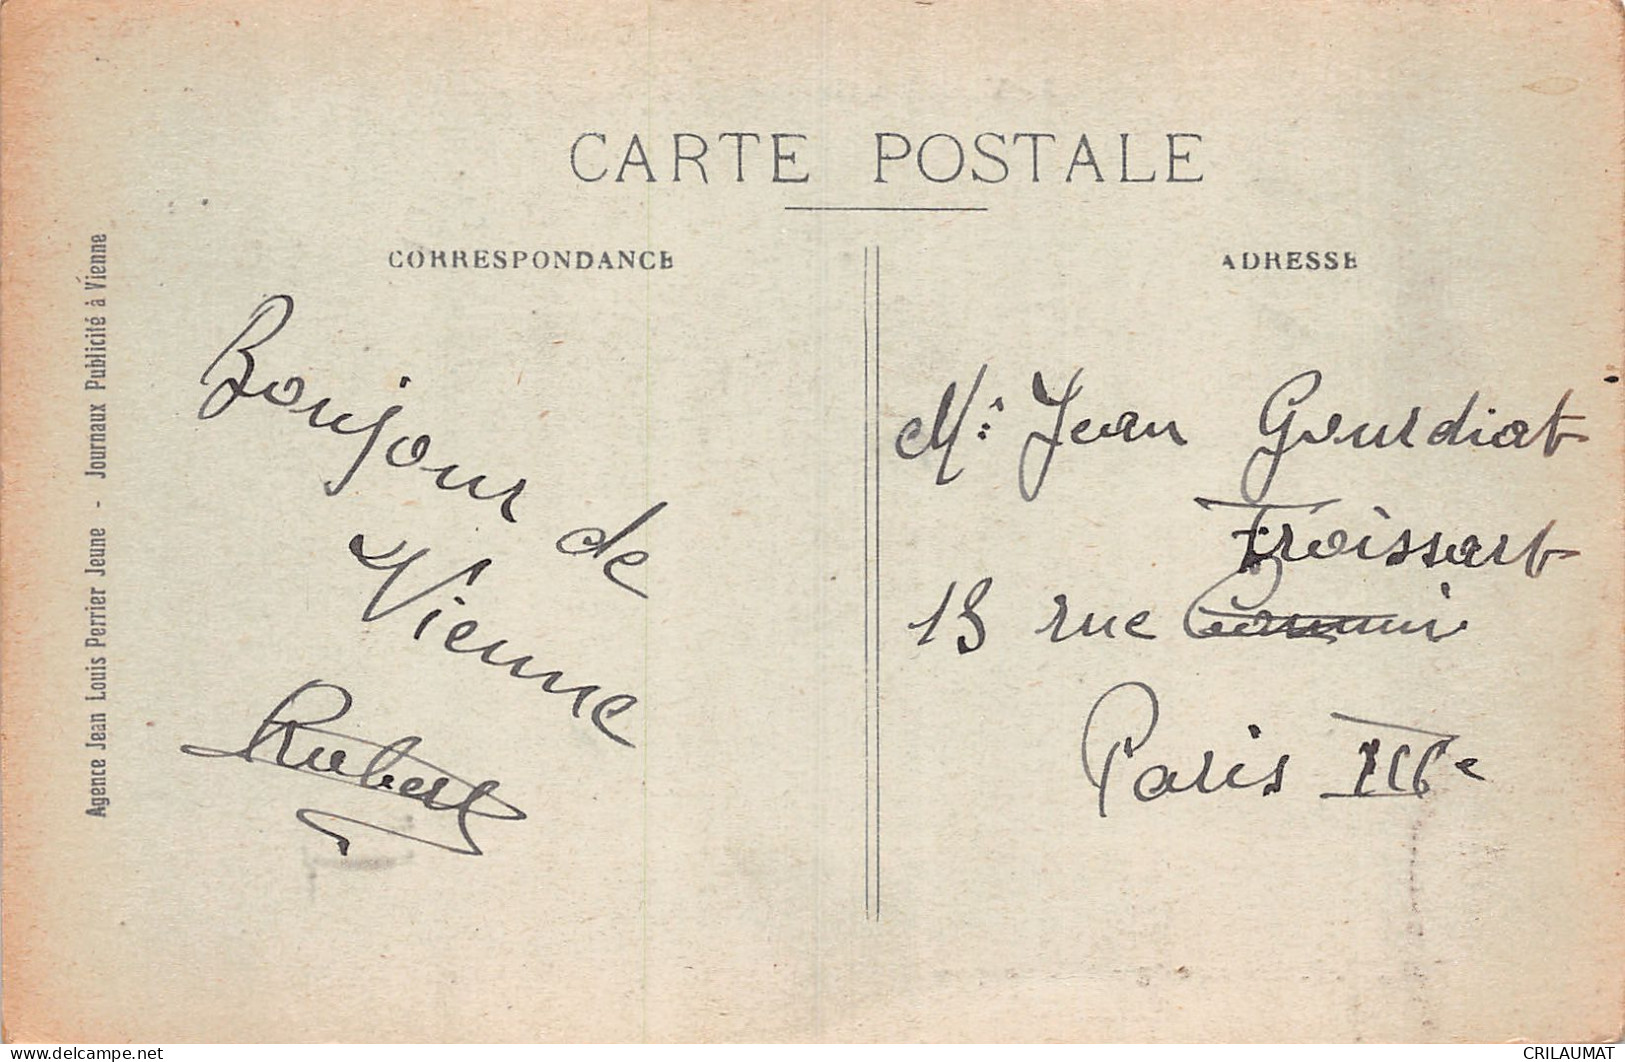 CARTE POSTALE
CORRESPONDANCE
ADRESSE
Agence Jean Louis Perrier Jeune - Journaux Publicité à Vienne
Bonjour de
Vienne
Robert
Mr Jean Gourdiat
Froissart
13 rue
Paris IIIe
delcampe.net
CRILAUMAT